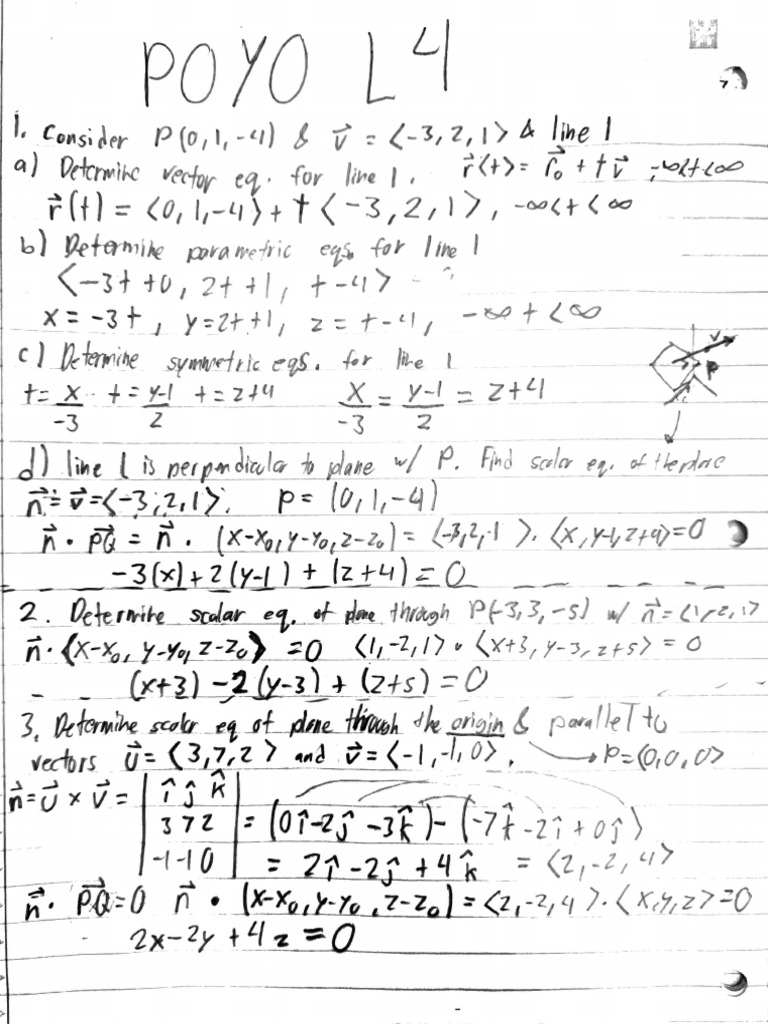 POYO L4
1. Consider P(0,1,-4) & v⃗ = <-3,2,1> & line l
a) Determine vector eq. for line l. r⃗(t) = r⃗₀ + tv⃗ -∞<t<∞
r⃗(t) = <0,1,-4> + t<-3,2,1>, -∞<t<∞
b) Determine parametric eqs. for line l
<-3t+0, 2t+1, t-4>
x = -3t, y=2t+1, z=t-4, -∞ t<∞
c) Determine symmetric eqs. for line l
t = x/-3 t = y-1/2 t = z+4 x/-3 = y-1/2 = z+4
v P
d) line L is perpendicular to plane w/ P. Find scalar eq. of the plane
n⃗ = v⃗ = <-3,2,1>. P = (0,1,-4)
n⃗ · PQ⃗ = n⃗ · (x-x₀, y-y₀, z-z₀) = <-3,2,1> · <x, y-1, z+4> = 0
-3(x)+2(y-1)+(z+4)=0
2. Determine scalar eq. of plane through P(-3,3,-5) w/ n⃗ = <1,-2,1>
n⃗ · <x-x₀, y-y₀, z-z₀> = 0 <1,-2,1> · <x+3, y-3, z+5> = 0
(x+3) -2(y-3) + (z+5) = 0
3. Determine scalar eq of plane through the origin & parallel to
vectors u⃗ = <3,7,2> and v⃗ = <-1,-1,0>. → P=(0,0,0>
n⃗ = u⃗ × v⃗ = | î ĵ k̂ |
| 3 7 2 | = (0î-2ĵ-3k̂) - (-7k̂-2î+0ĵ)
| -1 -1 0 | = 2î-2ĵ+4k̂ = <2,-2,4>
n⃗ · PQ⃗ = 0 n⃗ · (x-x₀, y-y₀, z-z₀) = <2,-2,4> · <x,y,z> = 0
2x-2y+4z=0